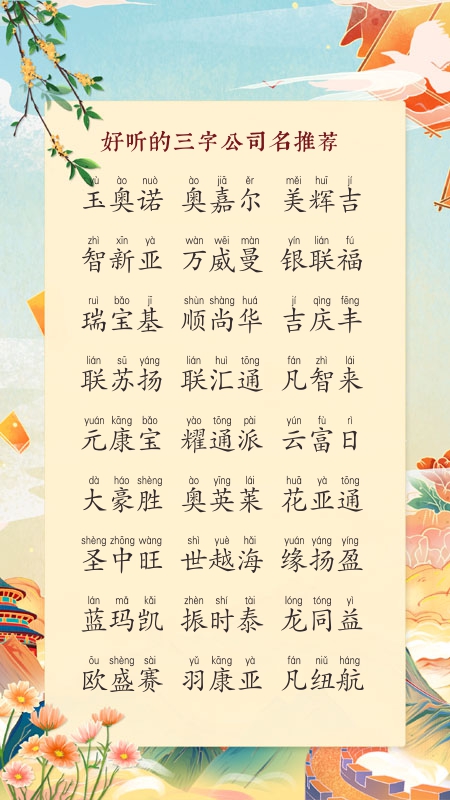 好听的三字公司名推荐
yù ào nuò ào jiā ěr měi huī jí
玉奥诺 奥嘉尔 美辉吉
zhì xīn yà wàn wēi màn yín lián fú
智新亚 万威曼 银联福
ruì bǎo jī shùn shàng huá jí qìng fēng
瑞宝基 顺尚华 吉庆丰
lián sū yáng lián huì tōng fán zhì lái
联苏扬 联汇通 凡智来
yuán kāng bǎo yào tōng pài yún fù rì
元康宝 耀通派 云富日
dà háo shèng ào yīng lái huā yà tōng
大豪胜 奥英莱 花亚通
shèng zhōng wàng shì yuè hǎi yuán yáng yíng
圣中旺 世越海 缘扬盈
lán mǎ kǎi zhèn shí tài lóng tóng yì
蓝玛凯 振时泰 龙同益
ōu shèng sài yǔ kāng yà fán niǔ háng
欧盛赛 羽康亚 凡纽航